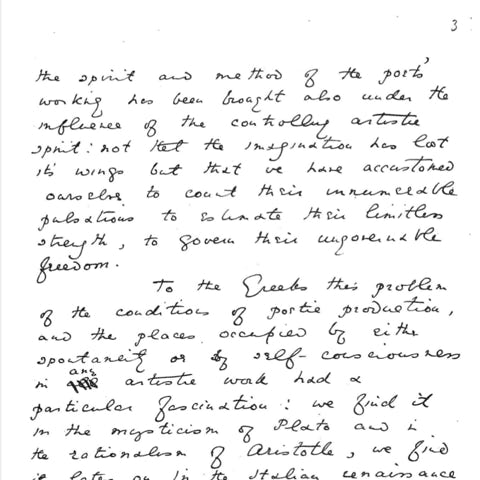 3
the spirit and method of the poets'
working has been brought also under the
influence of the controlling artistic
spirit: not that the imagination has lost
its wings but that we have accustomed
ourselves to count their innumerable
pulsations to estimate their limitless
strength, to govern their ungovernable
freedom.
To the Greeks this problem
of the conditions of poetic production,
and the places occupied by either
spontaneity or by self-consciousness
in any artistic work had a
particular fascination: we find it
in the mysticism of Plato and in
the rationalism of Aristotle, we find
it later on in the Italian renaissance